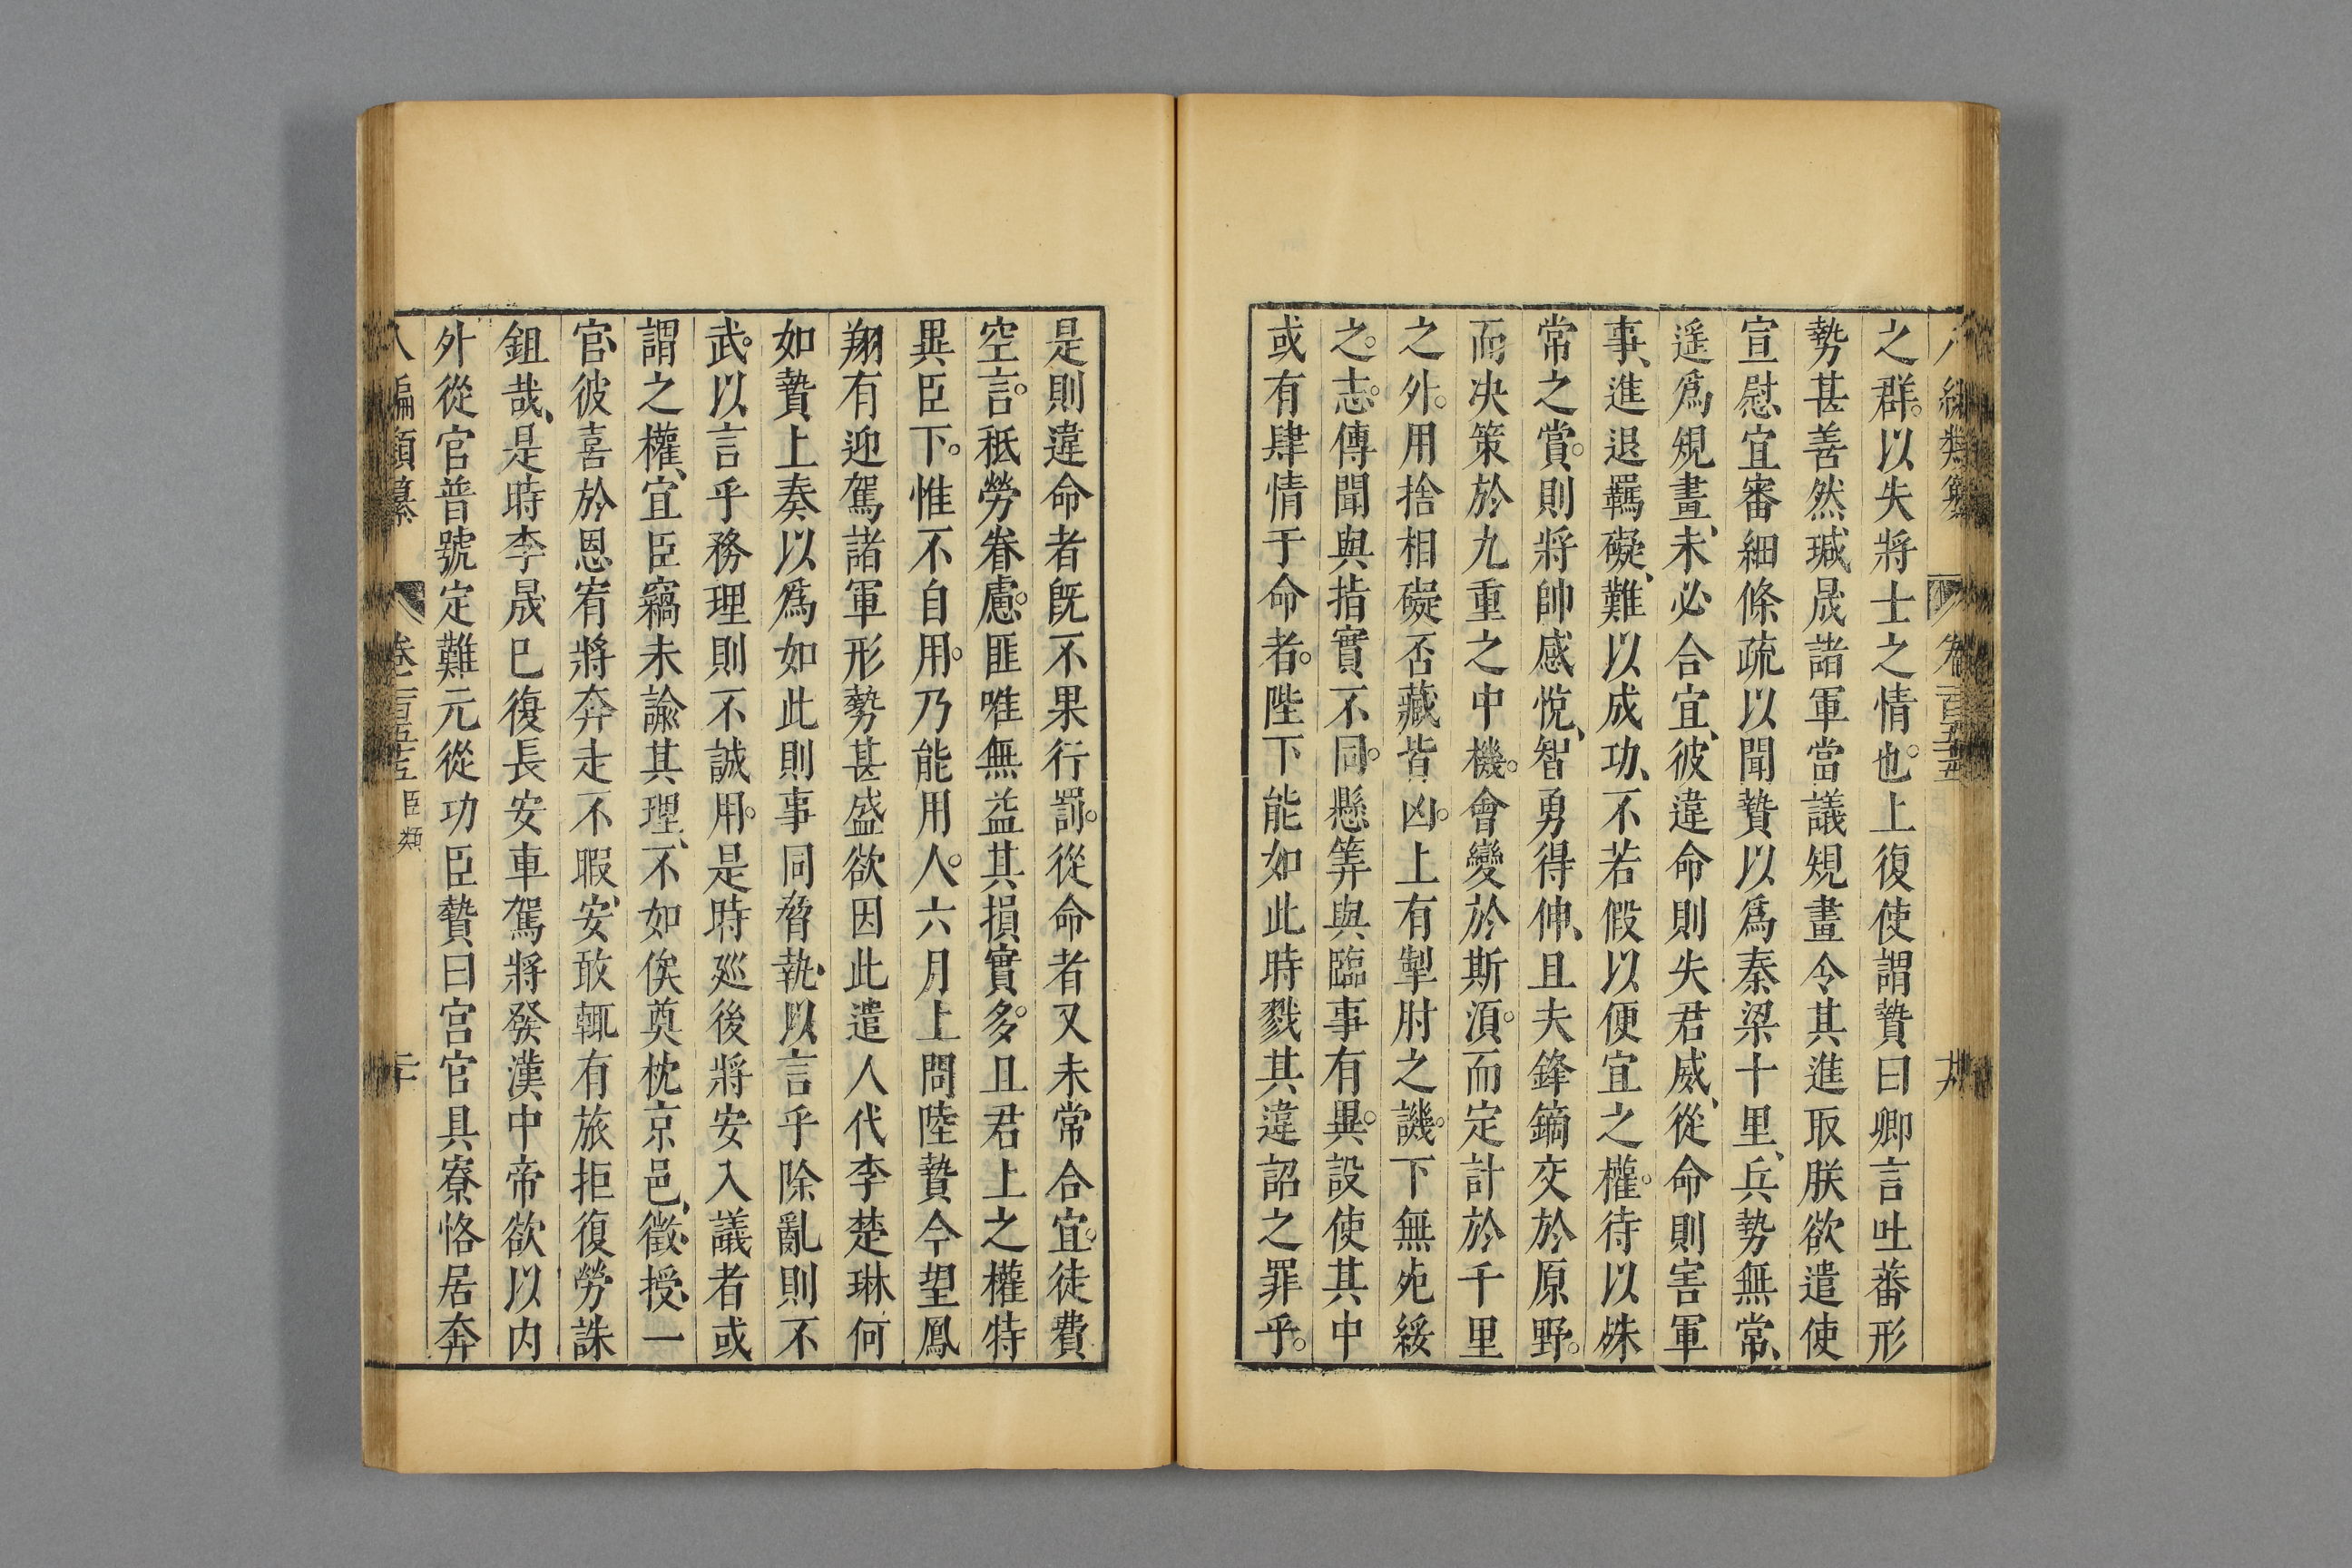 之群。以失將士之情也。上復使謂贄曰卿言吐蕃形
勢甚善然瑊、晟諸軍當議規畫令其進取朕欲遣使
宣慰、宜審細條疏以聞贄以爲秦梁千里、兵勢無常、
遥爲規畫、未必合宜、彼違命則失君威、從命則害軍
事、進退羈礙、難以成功、不若假以便宜之權。待以殊
常之賞。則將帥感悅、智勇得伸、且夫鋒鏑交於原野。
而决策於九重之中機。會變於斯須。而定計於千里
之外。用捨相礙否臧皆凶。上有掣肘之譏。下無死綏
之。志。傳聞與指實不同。懸筭與臨事有異。設使其中
或有肆情于命者。陛下能如此時戮其違詔之罪乎。
是則違命者旣不果行罰。從命者又未常合宜。徒費
空言。秪勞眷慮。匪唯無益其損實多。且君上之權特
異臣下。惟不自用。乃能用人。六月上問陸贄今望鳳
翔有迎駕諸軍形勢甚盛欲因此遣人代李楚琳何
如贄上奏以爲如此則事同脅執、以言乎除亂則不
武。以言乎務理則不誠用。是時廵後將安入議者或
謂之權、宜臣竊未諭其理、不如俟奠枕京邑、徵授、一
官、彼喜於恩宥將奔走不暇、安、敢輒有旅拒復勞誅
鉏哉、是時李晟已復長安車駕將發漢中帝欲以内
外從官普號定難元從功臣贄曰宮官具寮恪居奔